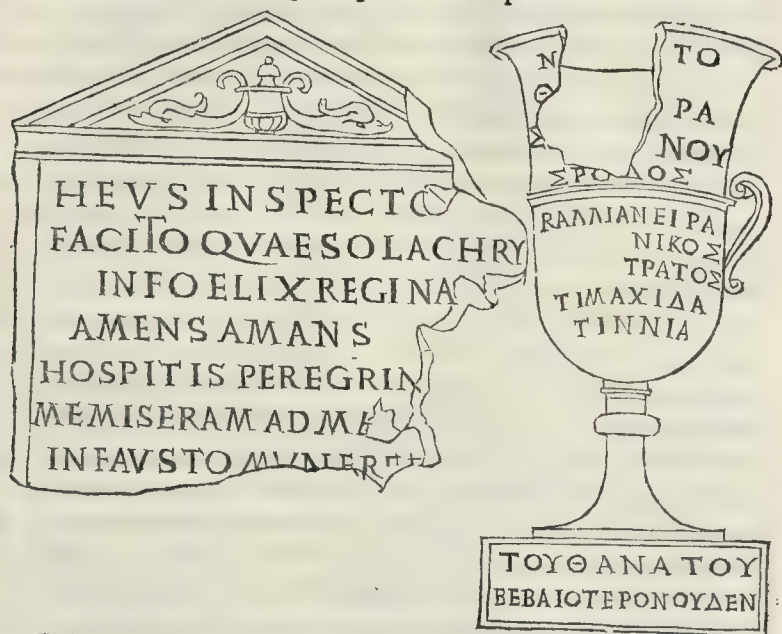 HEVS INSPECTO
FACITO QVAESO LACHRY
INFOELIX REGINA
AMENS AMANS
HOSPITIS PEREGRIN
MEMISERAM AD ME
INFAVSTO MVNER
Ν ΤΟ
Θ ΡΑ
ΝΟΥ
ΣΡΟΔΟΣ
ΡΑΛΛΙΑΝΕΙΡΑ
ΝΙΚΟΣ
ΤΡΑΤΟΣ
ΤΙΜΑΧΙΔΑ
ΤΙΝΝΙΑ
ΤΟΥΘΑΝΑΤΟΥ
ΒΕΒΑΙΟΤΕΡΟΝΟΥΔΕΝ